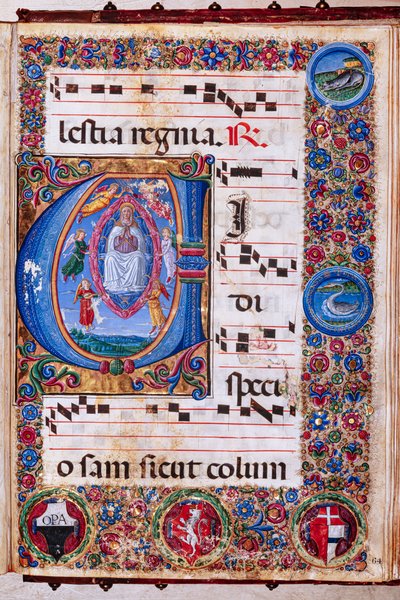 lestia regnia. R.
VI
DI
speci
o sam sicut colum
OPA
64